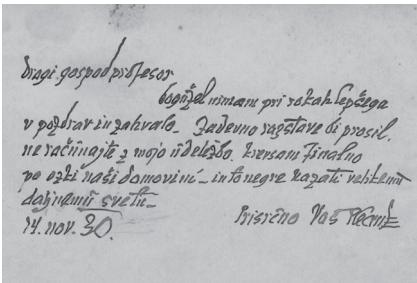 dragi gospod profesor
bogužel nimam pri rokah lepšega
v pozdrav in zahvalo. Zadevno razstave bi prosil,
ne računajte z mojo udeležbo. ker sam finalno
po ozki naši domovini – in to negre kazati velikemu
daljnemu svetu –
14. nov. 30.
Prisrčno Vaš